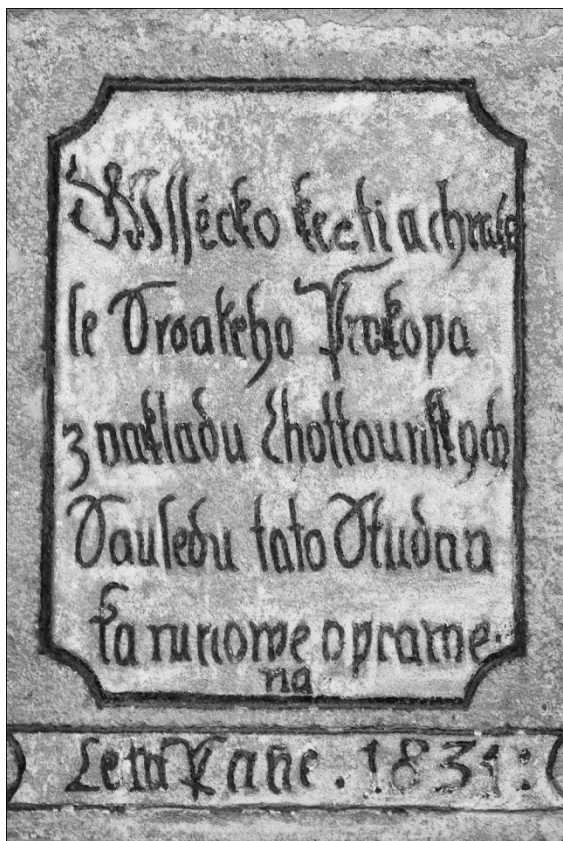 Wssecko kecti a chwa
le Swateho Prokopa
z nakladu Chottaunskych
Sausedu tato Studan
ka runowe oprawe-
na
Leta Pane . 1831 :